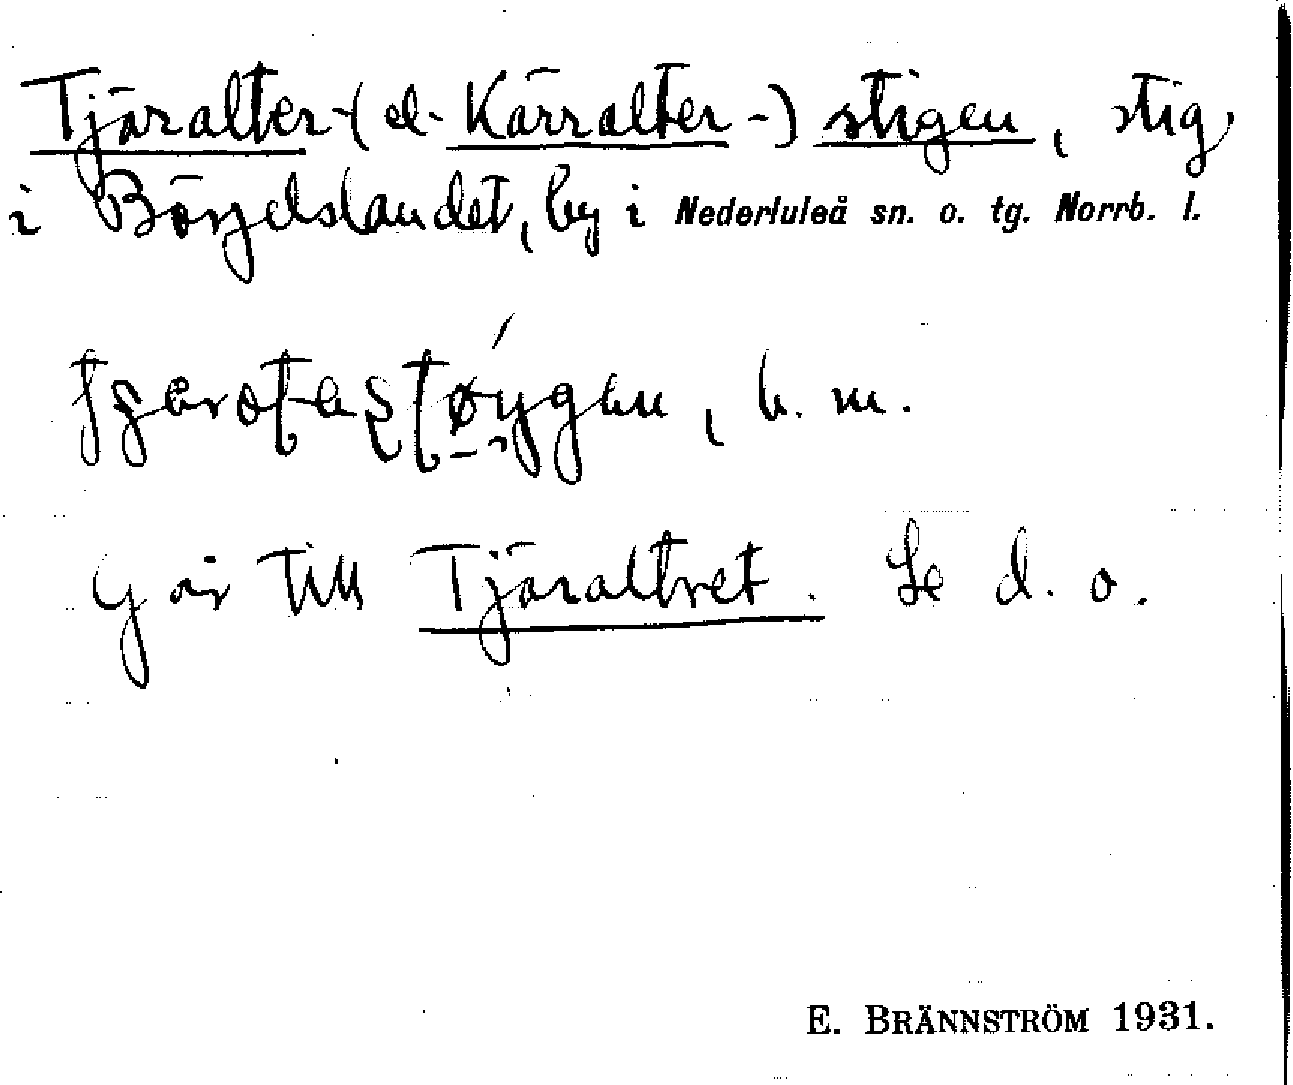 Tjäralter- (el. Kärralter-) stigen, stig
i Börjelslandet, by i Nederluleå sn. o. tg. Norrb. l.
b. m.
Går till Tjäraltret. Se d. o.
E. BRÄNNSTRÖM 1931.